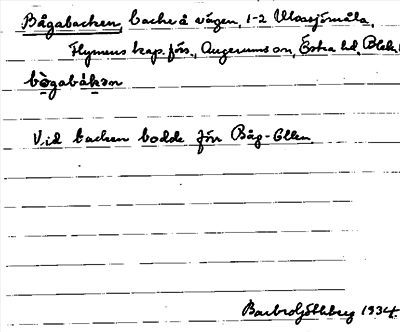 Bågabacken, backe å vägen, 1-2 Ulvasjömåla,
Flymens kap. förs., Augerums sn, Östra hd, Blek.
bògabákan
Vid backen bodde förr Båg-Ellen.
1934.